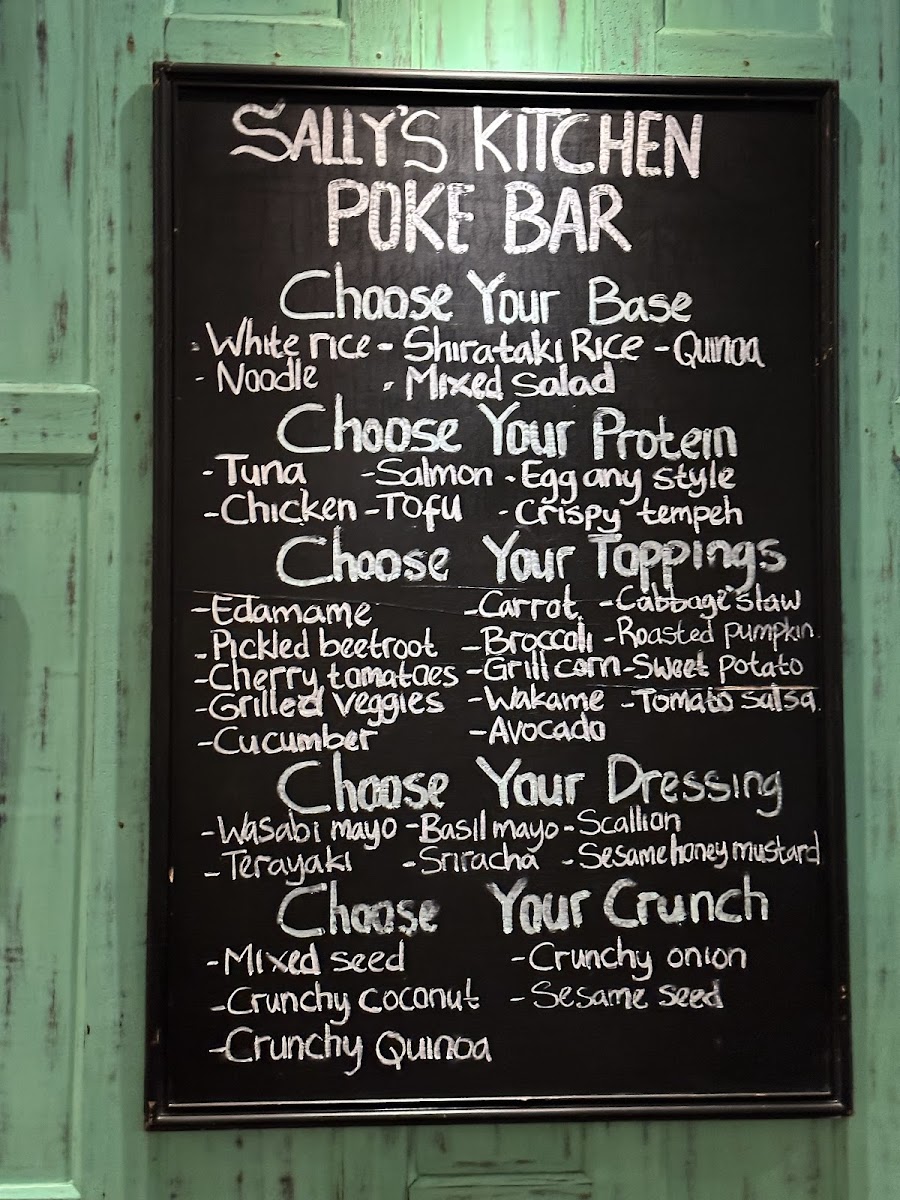 SALLY'S KITCHEN
POKE BAR
Choose Your Base
- White rice - Shirataki Rice - Quinoa
- Noodle - Mixed salad
Choose Your Protein
- Tuna - Salmon - Egg any style
- Chicken - Tofu - Crispy tempeh
Choose Your Toppings
- Edamame - Carrot - Cabbage slaw
- Pickled beetroot - Broccoli - Roasted pumpkin
- Cherry tomatoes - Grill corn - Sweet potato
- Grilled veggies - Wakame - Tomato salsa
- Cucumber - Avocado
Choose Your Dressing
- Wasabi mayo - Basil mayo - Scallion
- Terayaki - Sriracha - Sesame honey mustard
Choose Your Crunch
- Mixed seed - Crunchy onion
- Crunchy coconut - Sesame seed
- Crunchy Quinoa